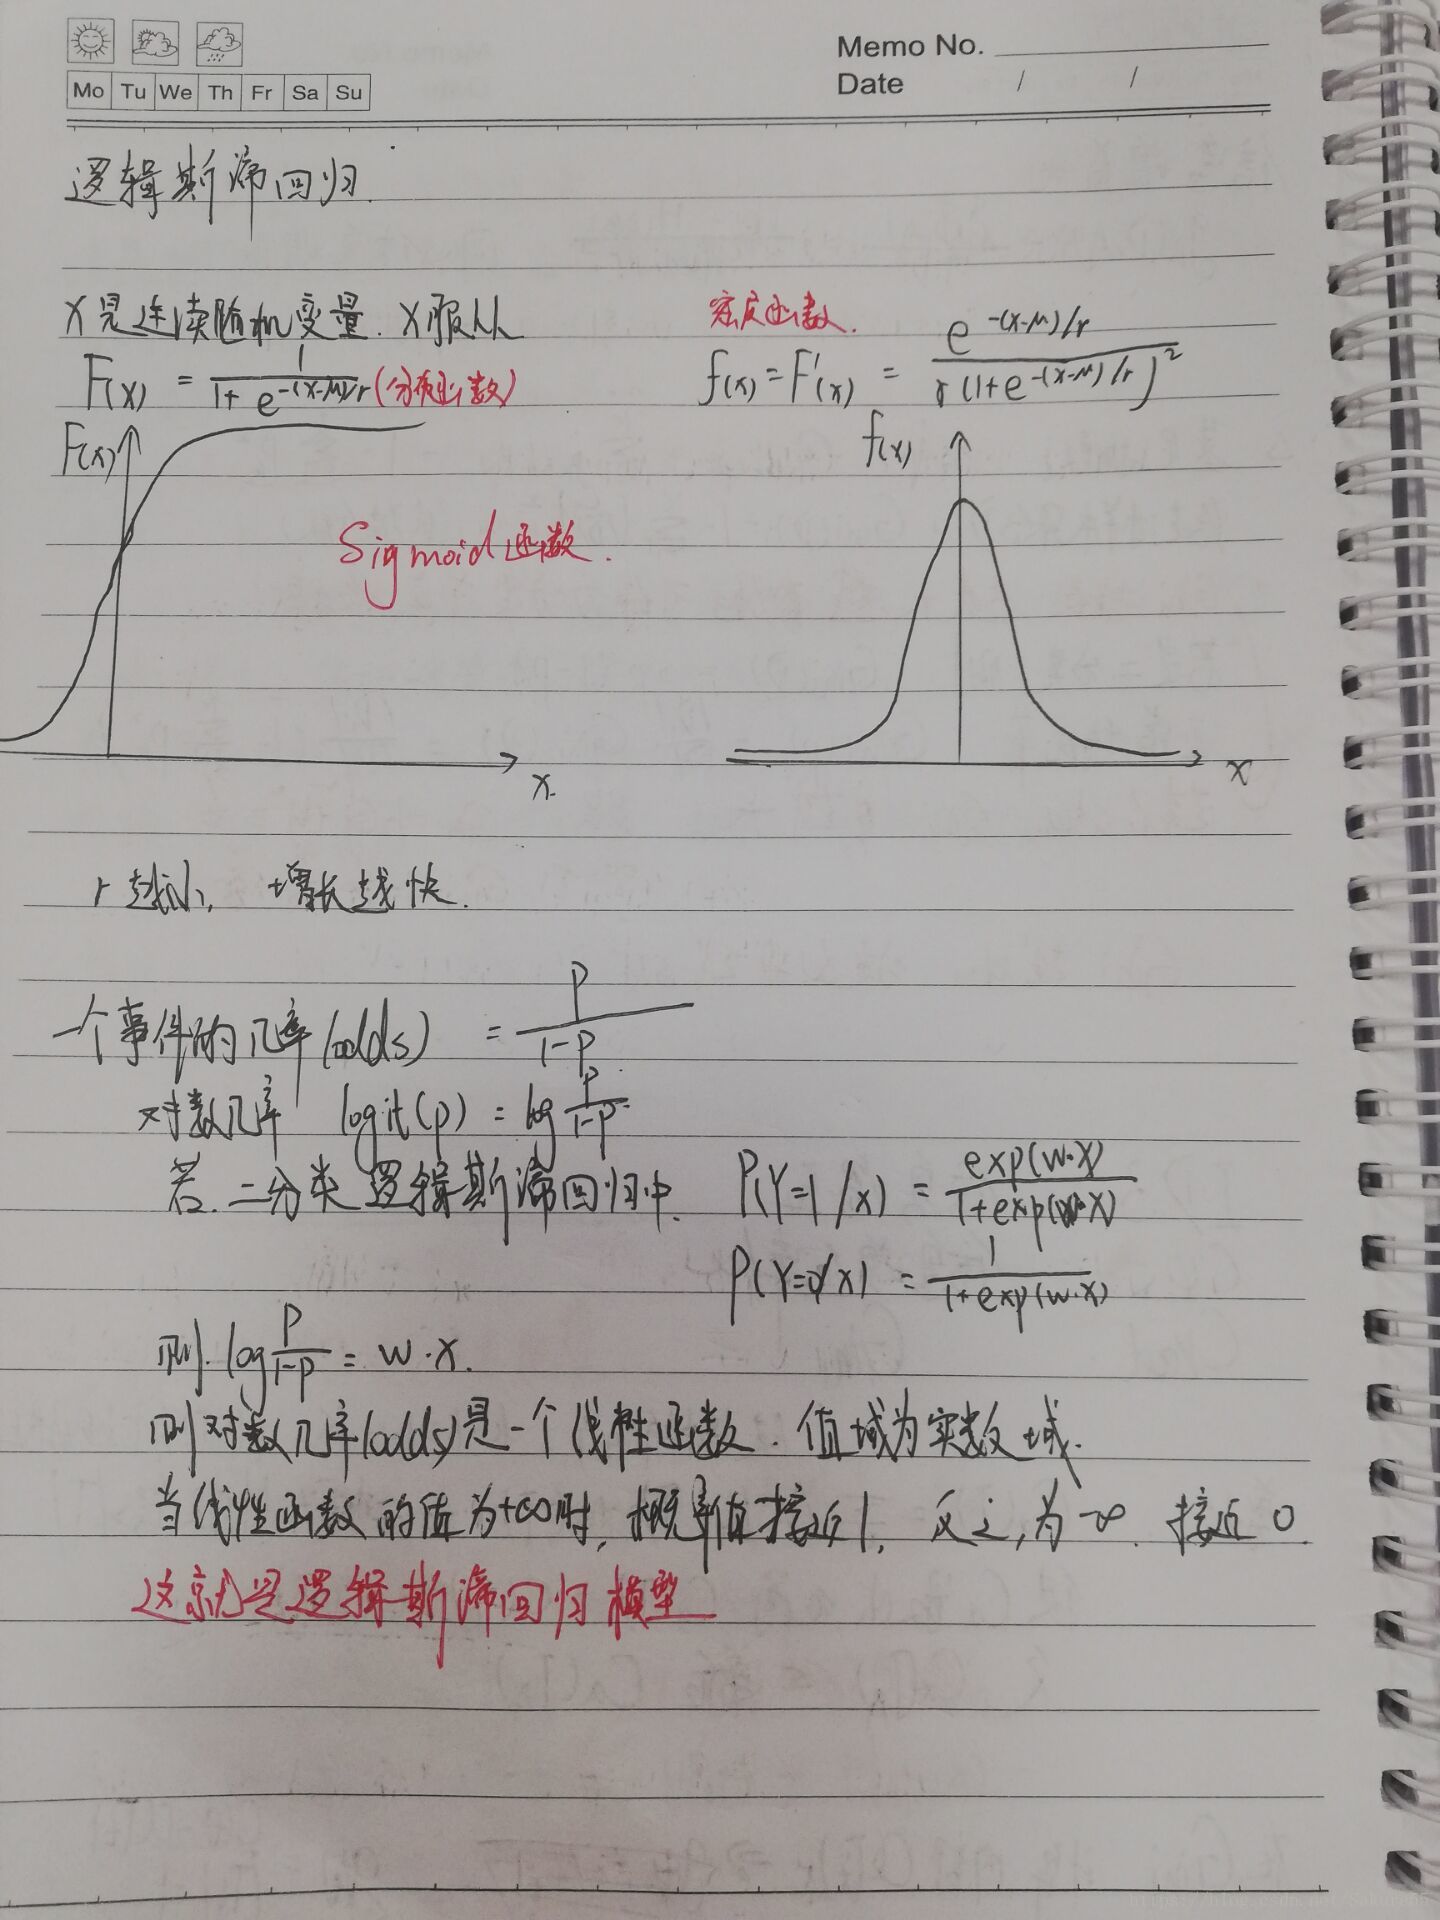 Memo No.
Mo Tu We Th Fr Sa Su
Date / /
逻辑斯谛回归.
X是连续随机变量. X服从
F(x) = 1/(1+e^{-(x-μ)/r}) (分布函数)
密度函数.
f(x) = F'(x) = e^{-(x-μ)/r}/(r(1+e^{-(x-μ)/r})^2)
F(x)
Sigmoid函数.
x.
f(x)
x
r越小, 增长越快.
一个事件的几率(odds) = P/(1-P)
对数几率 logit(p) = log P/(1-P).
若.二分类逻辑斯谛回归中. P(Y=1/x) = exp(w·x)/(1+exp(w·x))
P(Y=0/x) = 1/(1+exp(w·x))
则. log P/(1-P) = w·x.
则对数几率(odds)是一个线性函数. 值域为实数域.
当线性函数的值为+∞时, 概率值接近1, 反之,为-∞ 接近0.
这就是逻辑斯谛回归模型